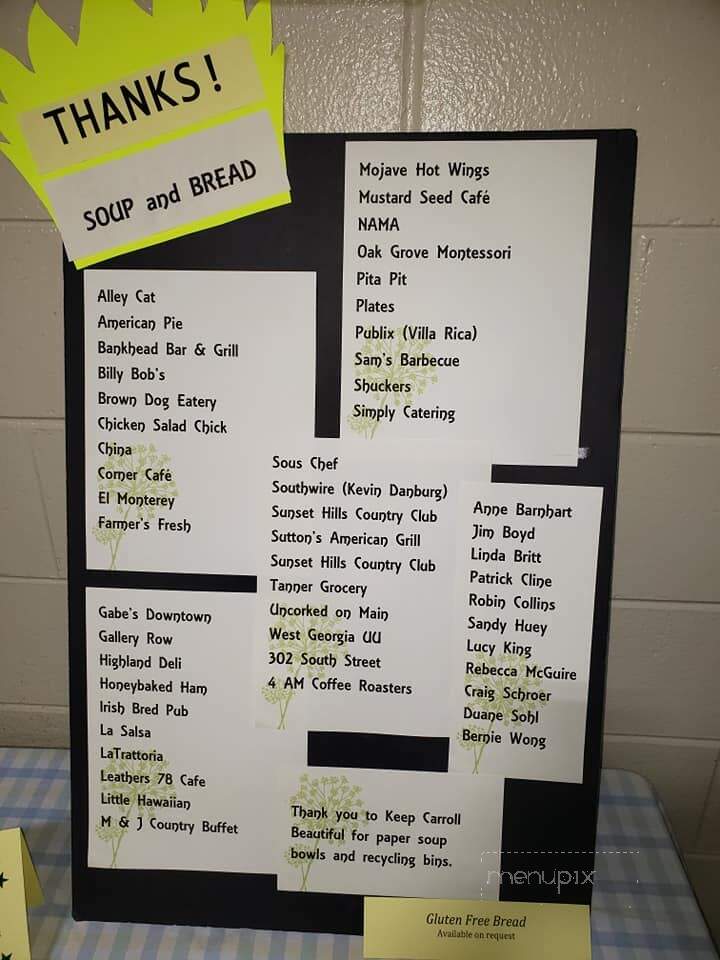 THANKS!
SOUP and BREAD
Alley Cat
American Pie
Bankhead Bar & Grill
Billy Bob's
Brown Dog Eatery
Chicken Salad Chick
China
Corner Café
El Monterey
Farmer's Fresh
Gabe's Downtown
Gallery Row
Highland Deli
Honeybaked Ham
Irish Bred Pub
La Salsa
LaTrattoria
Leathers 78 Cafe
Little Hawaiian
M & J Country Buffet
Mojave Hot Wings
Mustard Seed Café
NAMA
Oak Grove Montessori
Pita Pit
Plates
Publix (Villa Rica)
Sam's Barbecue
Shuckers
Simply Catering
Sous Chef
Southwire (Kevin Danburg)
Sunset Hills Country Club
Sutton's American Grill
Sunset Hills Country Club
Tanner Grocery
Uncorked on Main
West Georgia UU
302 South Street
4 AM Coffee Roasters
Anne Barnhart
Jim Boyd
Linda Britt
Patrick Cline
Robin Collins
Sandy Huey
Lucy King
Rebecca McGuire
Craig Schroer
Duane Sohl
Bernie Wong
Thank you to Keep Carroll
Beautiful for paper soup
bowls and recycling bins.
menupix
Gluten Free Bread
Available on request